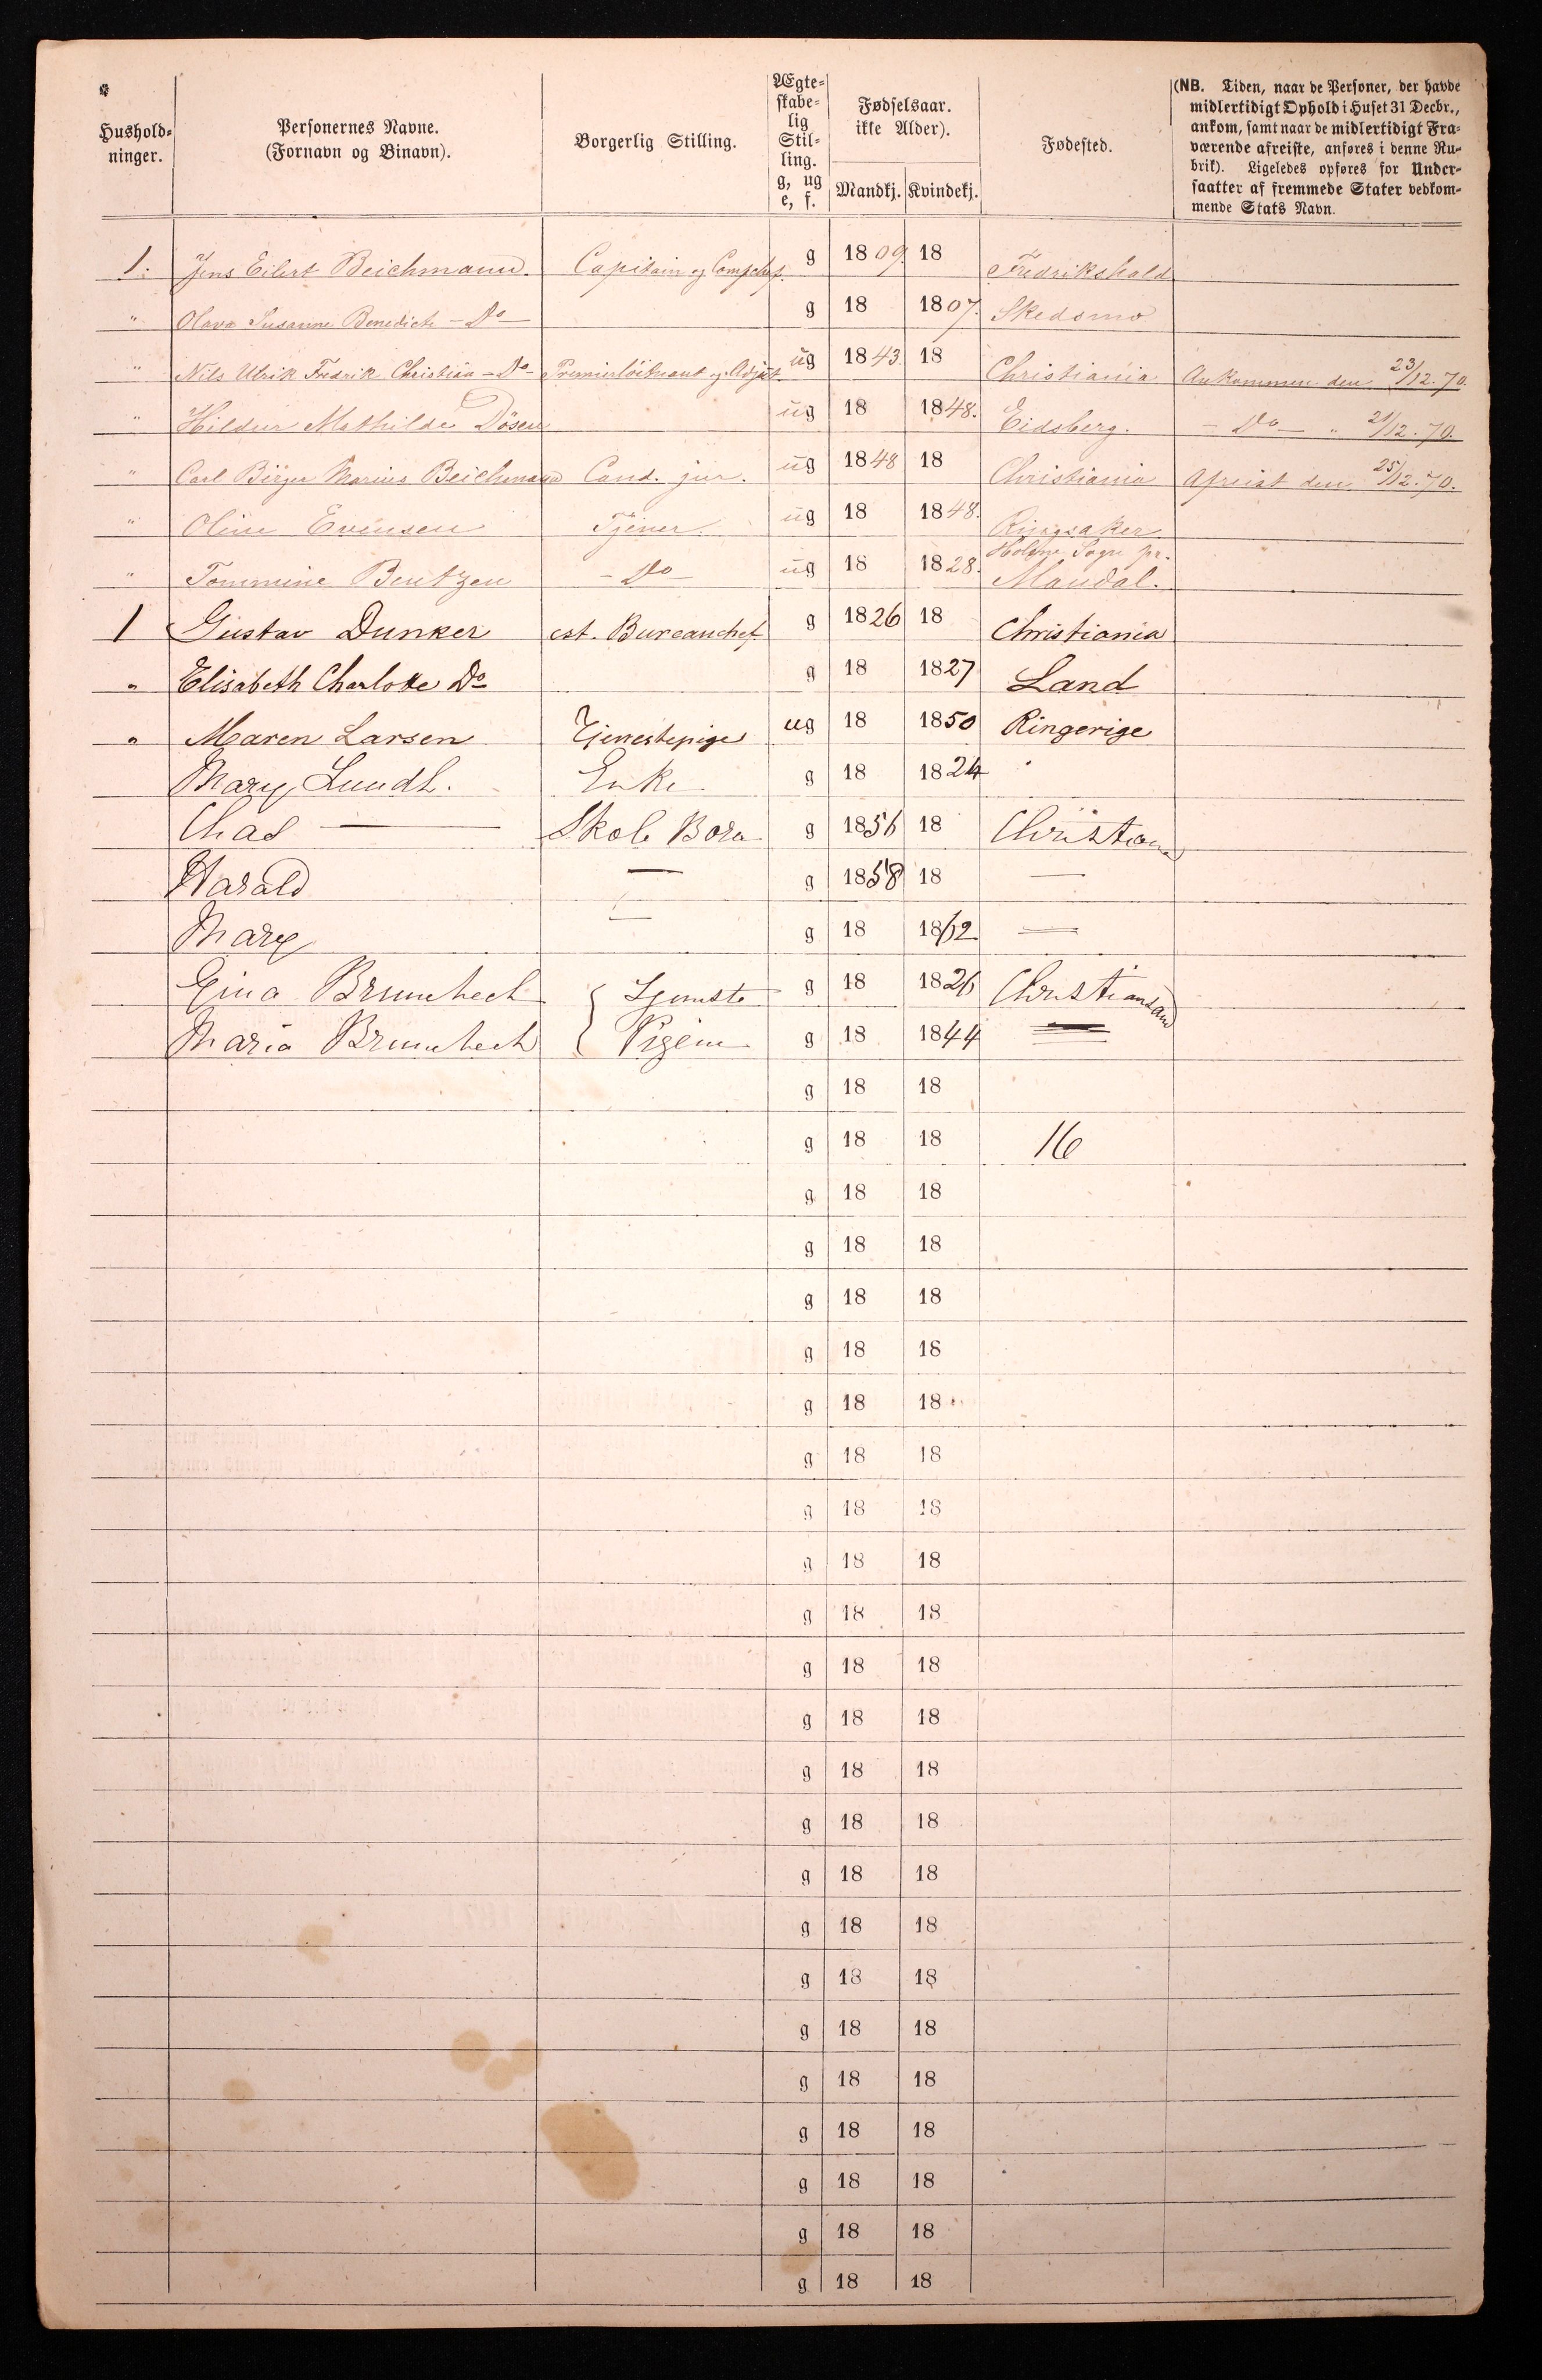 Hushold-
ninger.
Personernes Navne.
(Fornavn og Binavn).
Borgerlig Stilling.
Ægte-
skabe-
lig
Stil-
ling.
g, ug
e, f.
Fødselsaar.
ikke Alder).
Mandkj. Kvindekj.
Fødested.
(NB. Tiden, naar de Personer, der havde
midlertidigt Ophold i Huset 31 Decbr.,
ankom, samt naar de midlertidigt Fra-
værende afreiste, anføres i denne Ru-
brik). Ligeledes opføres for Under-
saatter af fremmede Stater vedkom-
mende Stats Navn.
1. Jens Eilert Beichmann. Capitain og Compchef. g 1809. 18 Fredrikshald
" Olava Susanne Benedicte - Do - g 18 1807. Skedsmo
" Nils Ulrik Fredrik Christian - Do - Premierlöitnant og Adjut. ug 1843. 18 Christiania. Ankommen den 23/12.70.
" Hildur Mathilde Dösen ug 18 1848. Eidsberg. - Do - " 21/12.70.
" Carl Birger Marius Beichmann Cand. jur. ug 1848 18 Christiania Afreist den 25/12.70.
" Oline Evensen Tjener. ug 18 1848. Ringsaker.
" Tommine Bentzen - Do - ug 18 1828. Holme Sogn pr. Mandal.
1 Gustav Dunker cst. Bureauchef g 1826 18 Christiania
" Elisabeth Charlotte Do g 18 1827 Land
" Maren Larsen Tjenestepige ug 18 1850 Ringerige
Mary Lundh. Enke g 18 1824 "
Chas — Skole Born g 1856 18 Christiania
Harald — g 1858 18 —
Mary — g 18 1862 —
Gina Brunchech { Tjenste g 18 1826 Christiansand
Maria Brunchech { Pigem g 18 1844 —
g 18 18
g 18 18 16
g 18 18
g 18 18
g 18 18
g 18 18
g 18 18
g 18 18
g 18 18
g 18 18
g 18 18
g 18 18
g 18 18
g 18 18
g 18 18
g 18 18
g 18 18
g 18 18
g 18 18
g 18 18
g 18 18
g 18 18
g 18 18
g 18 18